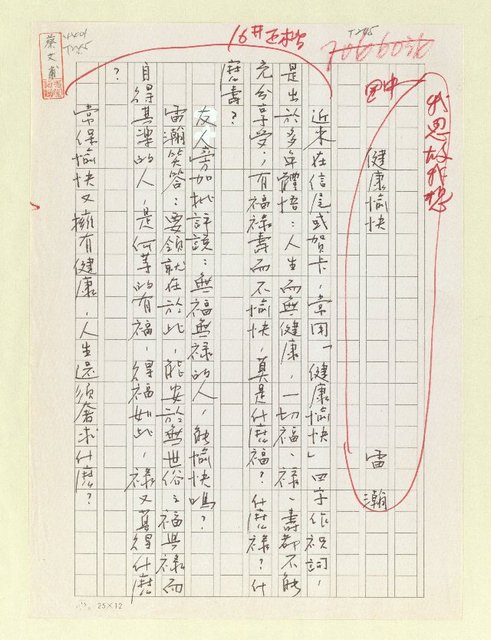 我思故我想
健康愉快
雷瀚
近來在信尾或賀卡，常用「健康愉快」四字作祝詞，
是出於多年體悟：人生而無健康，一切福、祿、壽都不能
充分享受；有福祿壽而不愉快，真是什麼福？什麼祿？什
麼壽？
友人旁加批評說：無福無祿的人，能愉快嗎？
雷瀚笑答：要領就在於此，能安於無世俗之福與祿而
自得其樂的人，是何等的有福，得福如此，祿又算得什麼
？
常保愉快又擁有健康，人生還須奢求什麼？
蔡文甫
25×12